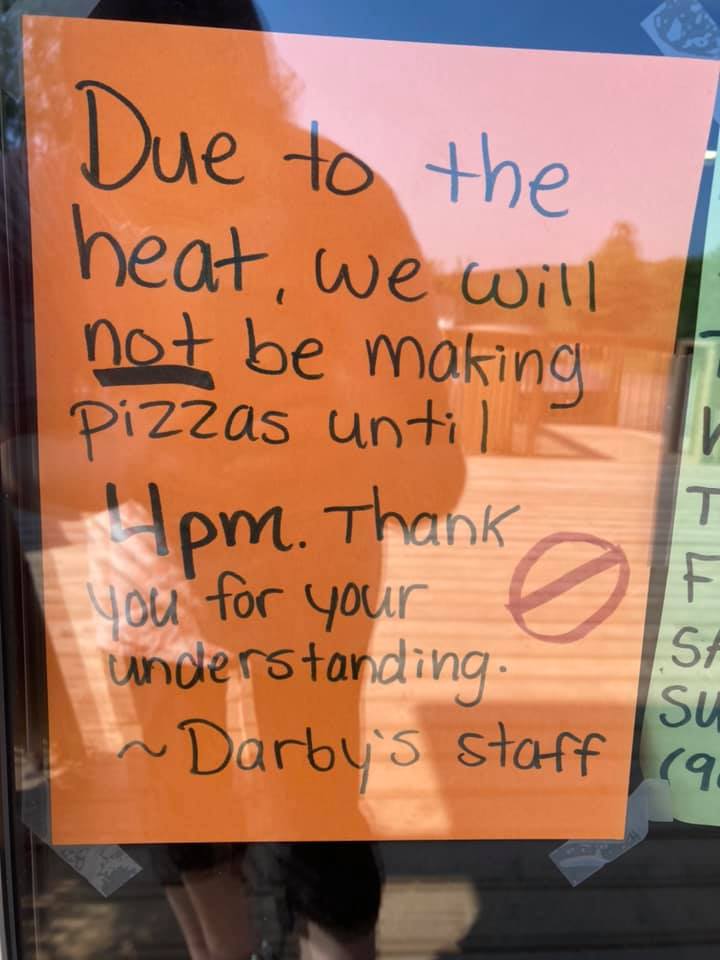 Due to the
heat, we will
not be making
pizzas until
4pm. Thank
you for your
understanding.
~ Darby's staff
T
F
SA
SU
(9